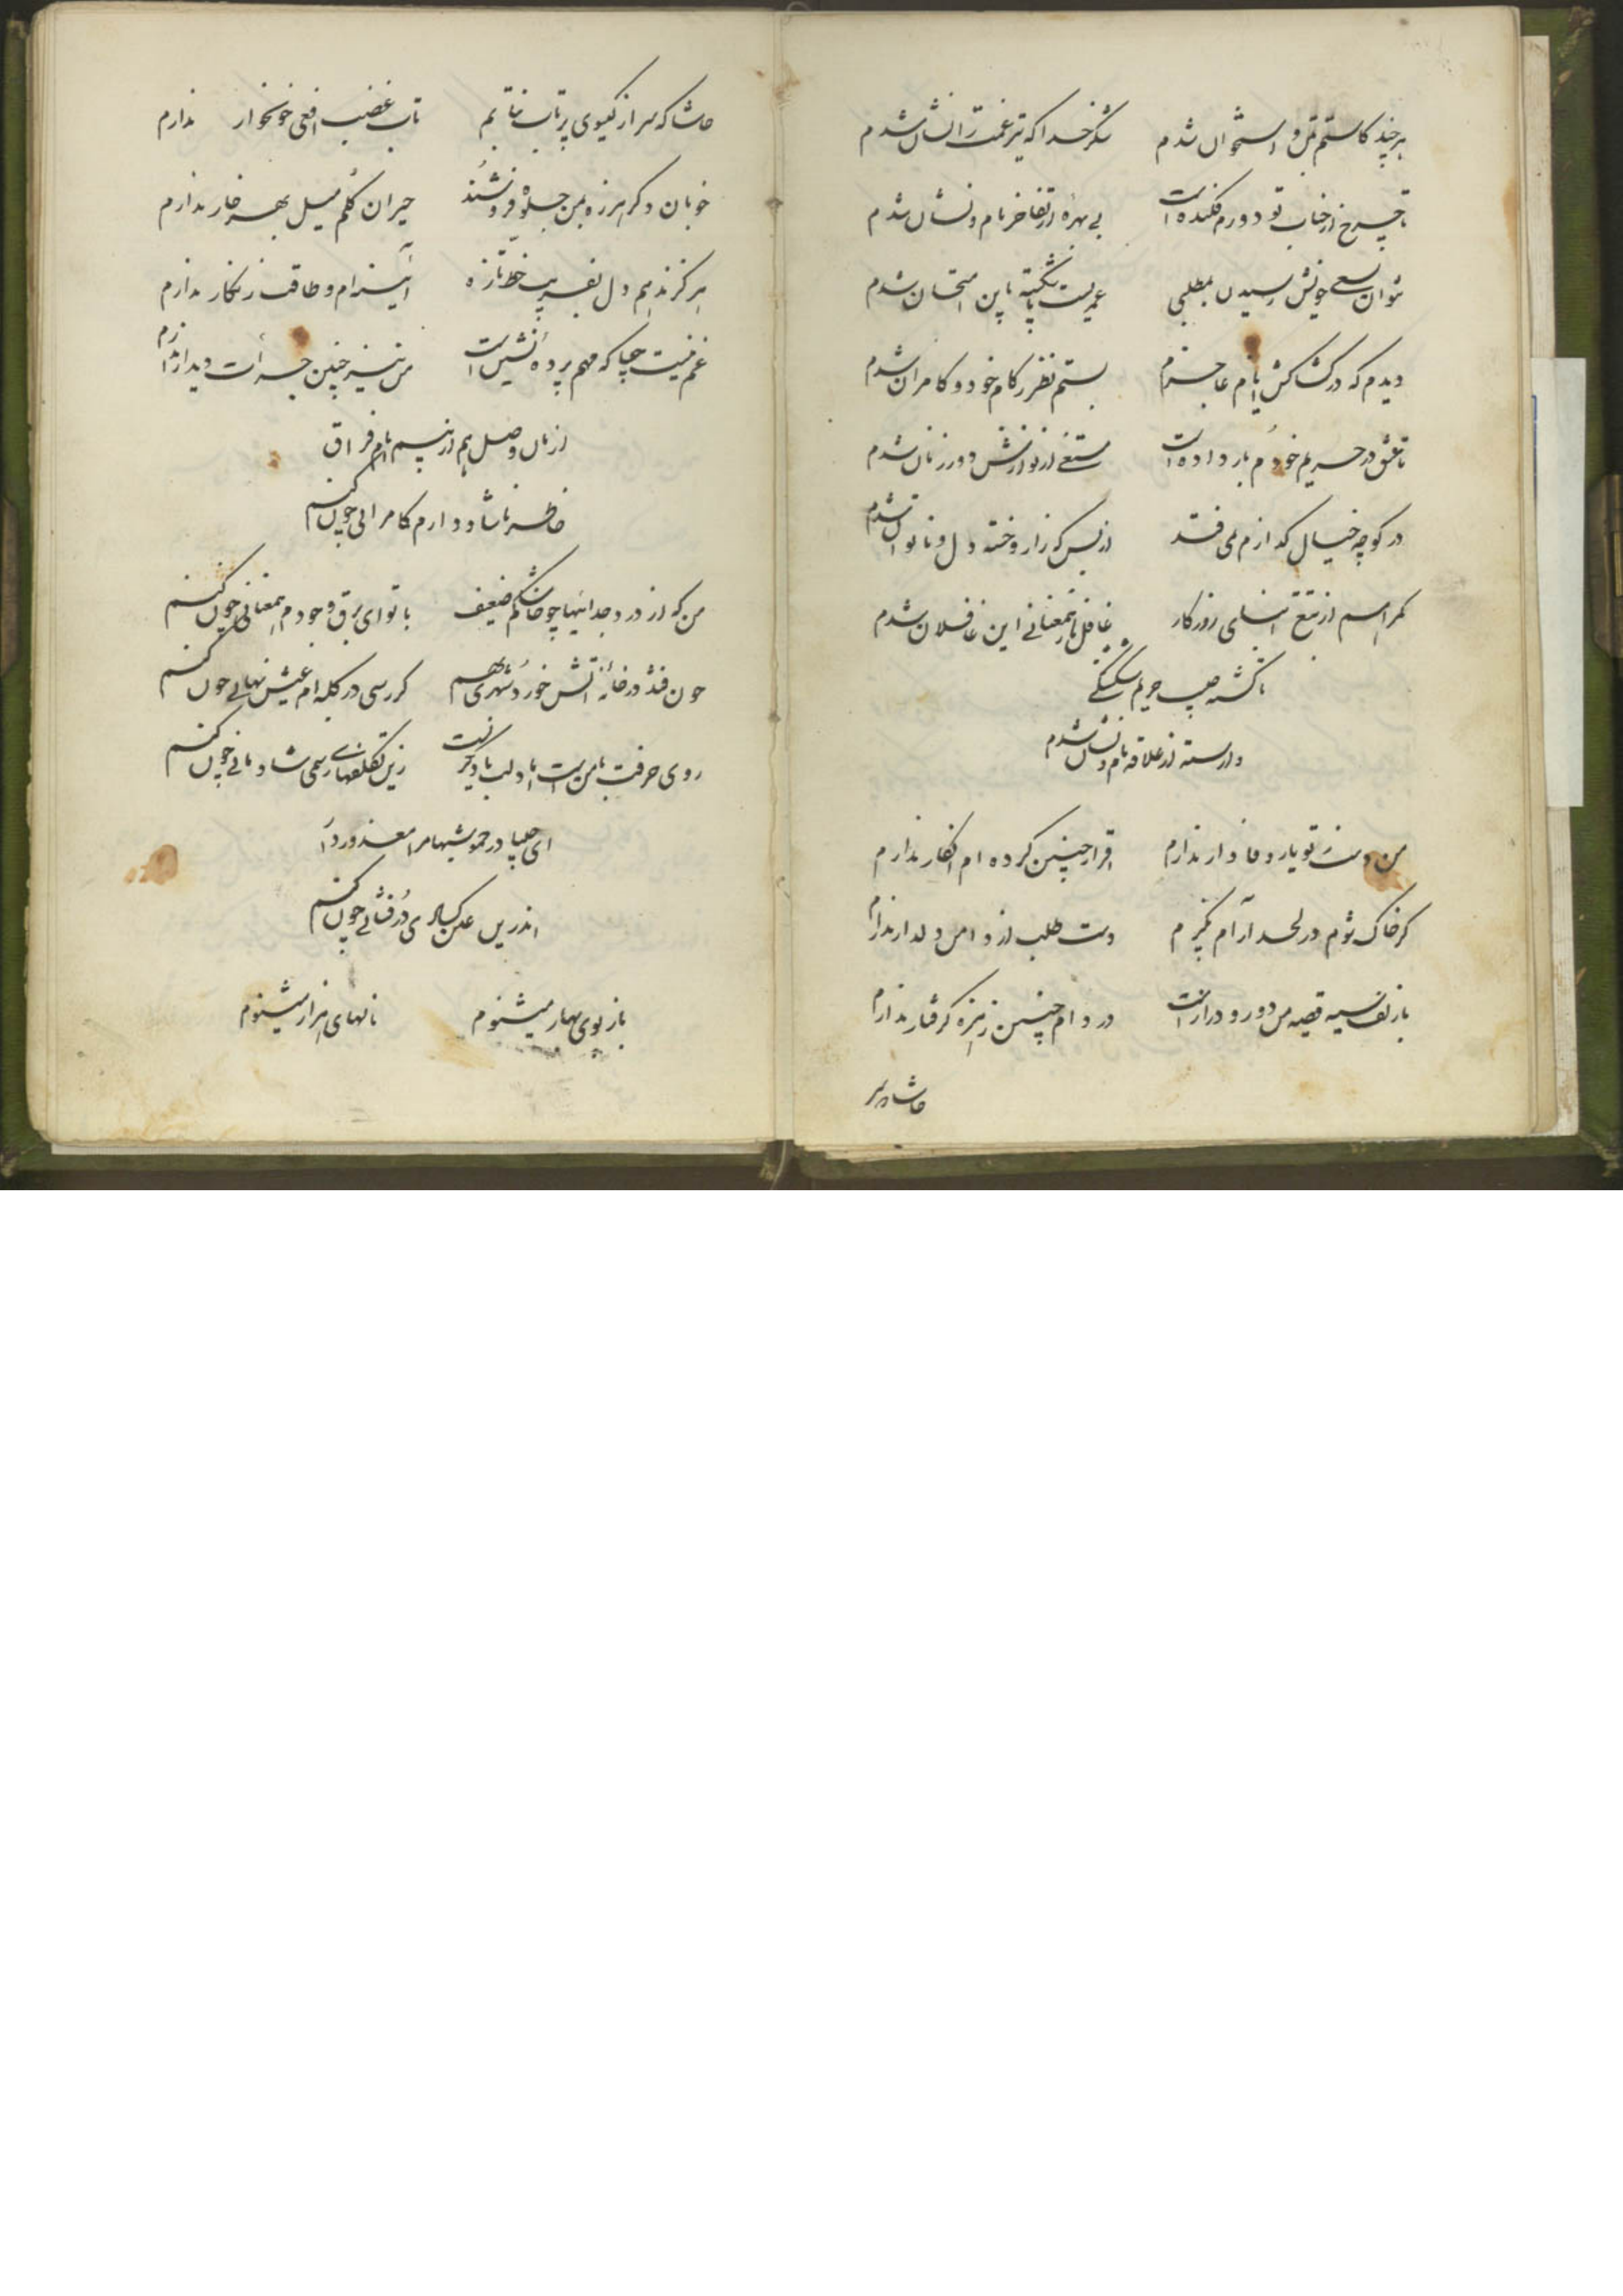 هر چند کاستم من و استخوان شدم شکر خدا که تیر غمت را نشان شدم
تا چرخ از جناب تو دورم فکنده است بی بهره از تفاخر نام و نشان شدم
نتوان بسعی خویش رسیدن بمطلبی عمریست پا شکسته باین امتحان شدم
دیدم که در کشاکش ایام عاجزم بستم نظر ز کام خود و کامران شدم
تا عشق در حریم خودم بار داده است مستغنی از نوازش دور زمان شدم
در کوچه خیال گدازم می فتد از بس که زار و خسته دل و ناتوان شدم
گمراهم از تتبع ابنای روزگار غافل ز همعنانی این غافلان شدم
تا گشته حیپ حریم شکستگی
وارسته از علاقه نام و نشان شدم
من دست ز تو یار وفادار ندارم اقرار چنین کرده ام انکار ندارم
گر خاک شوم در لحد آرام نگیرم دست طلب از دامن دلدار ندارم
با زلف سیه قصه من دور و دراز است در دام چنین زمزمه گرفتار ندارم
حاشا که سر
حاشا که سر از گیسوی پر تاب نتابم تاب غضب افعی خونخوار ندارم
خوبان دگر هرزه بمن جلوه فروشند حیران گلم میل بهر خار ندارم
هرگز ندهم دل بفریب خط تازه آیینه ام و طاقت زنگار ندارم
غم نیست حیا که مهم پرده نشین است من نیز چنین جرأت دیدار ندارم
در زمان وصل هم از بیم ایام فراق
خاطر ناشاد دارم کامرانی چون کنم
من که از درد جدائیها چو خاشاکم ضعیف با تو ای برق وجودم همعنانی چون کنم
چون فتد در خانه آتش خورد شهری بهم گر رسی در کلبه ام عیش نهانی چون کنم
روی حرفت با من است اما دلت با دیگریست زین تکلفهای رسمی شادمانی چون کنم
ای حیا در خموشیها مرا معذور دار
اندرین عکس کسادی درفشانی چون کنم
باز بوی بهار میشنوم نالهای هزار میشنوم